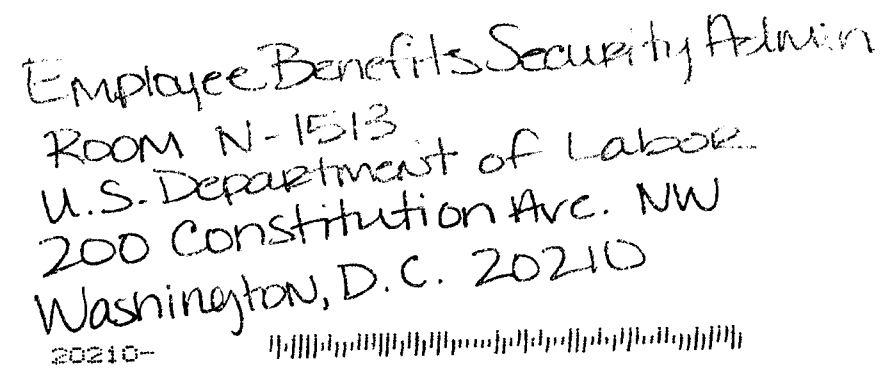 Employee Benefits Security Admin
Room N-1513
U.S. Department of Labor
200 Constitution Ave. NW
Washington, D.C. 20210
20210-